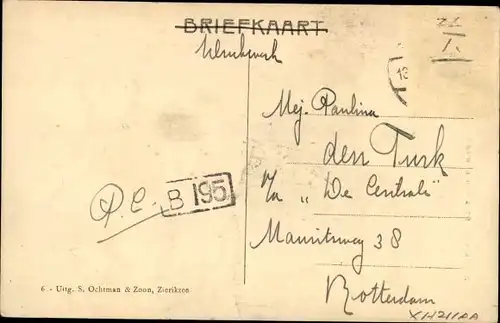 BRIEFKAART
Drukwerk
13
Mej. Paulina
den Turk
p/a „De Centrale"
Mauritsweg 38
Rotterdam
P.C. B 195
6 - Uitg. S. Ochtman & Zoon, Zierikzee.